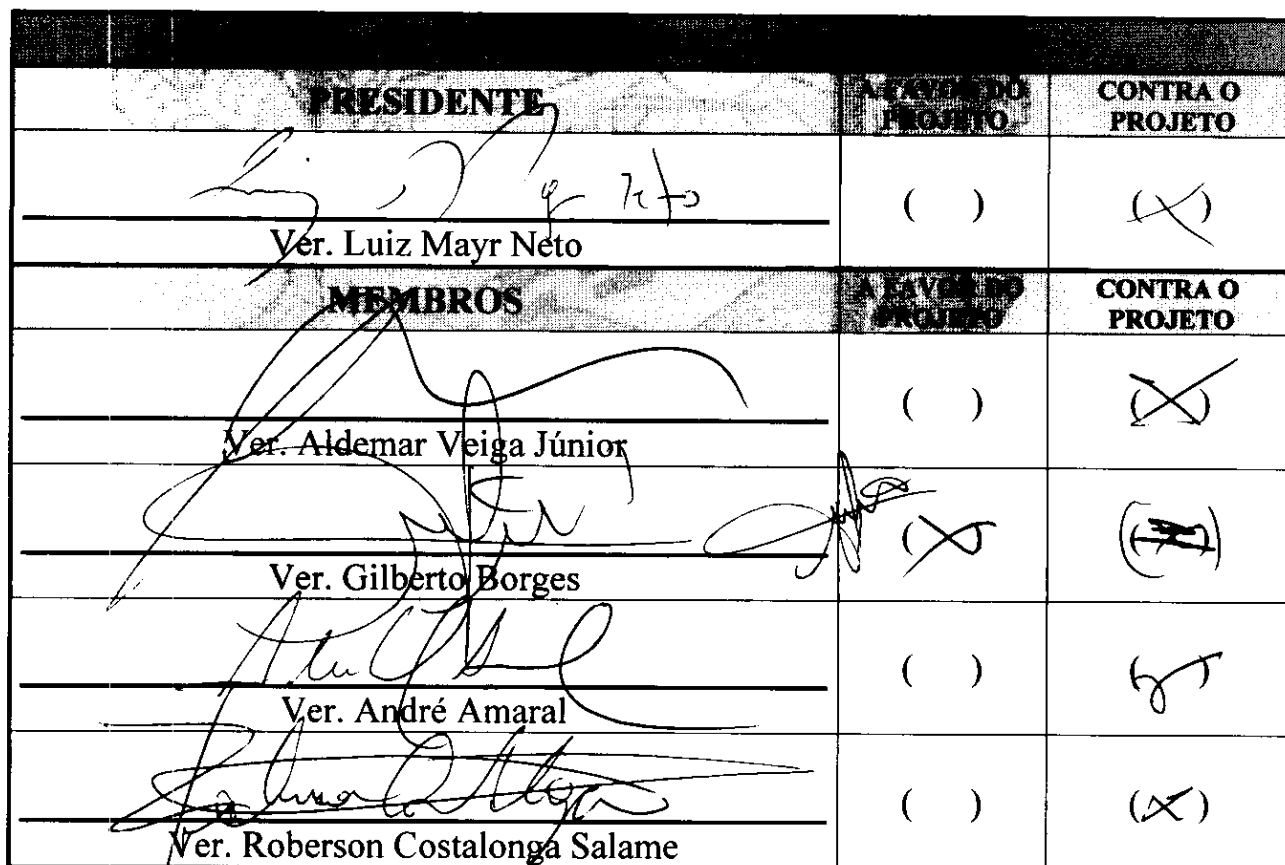 PRESIDENTE A FAVOR DO PROJETO CONTRA O PROJETO
Ver. Luiz Mayr Neto ( ) (X)
MEMBROS A FAVOR DO PROJETO CONTRA O PROJETO
Ver. Aldemar Veiga Júnior ( ) (X)
Ver. Gilberto Borges (X)
Ver. André Amaral ( )
Ver. Roberson Costalonga Salame ( ) (X)